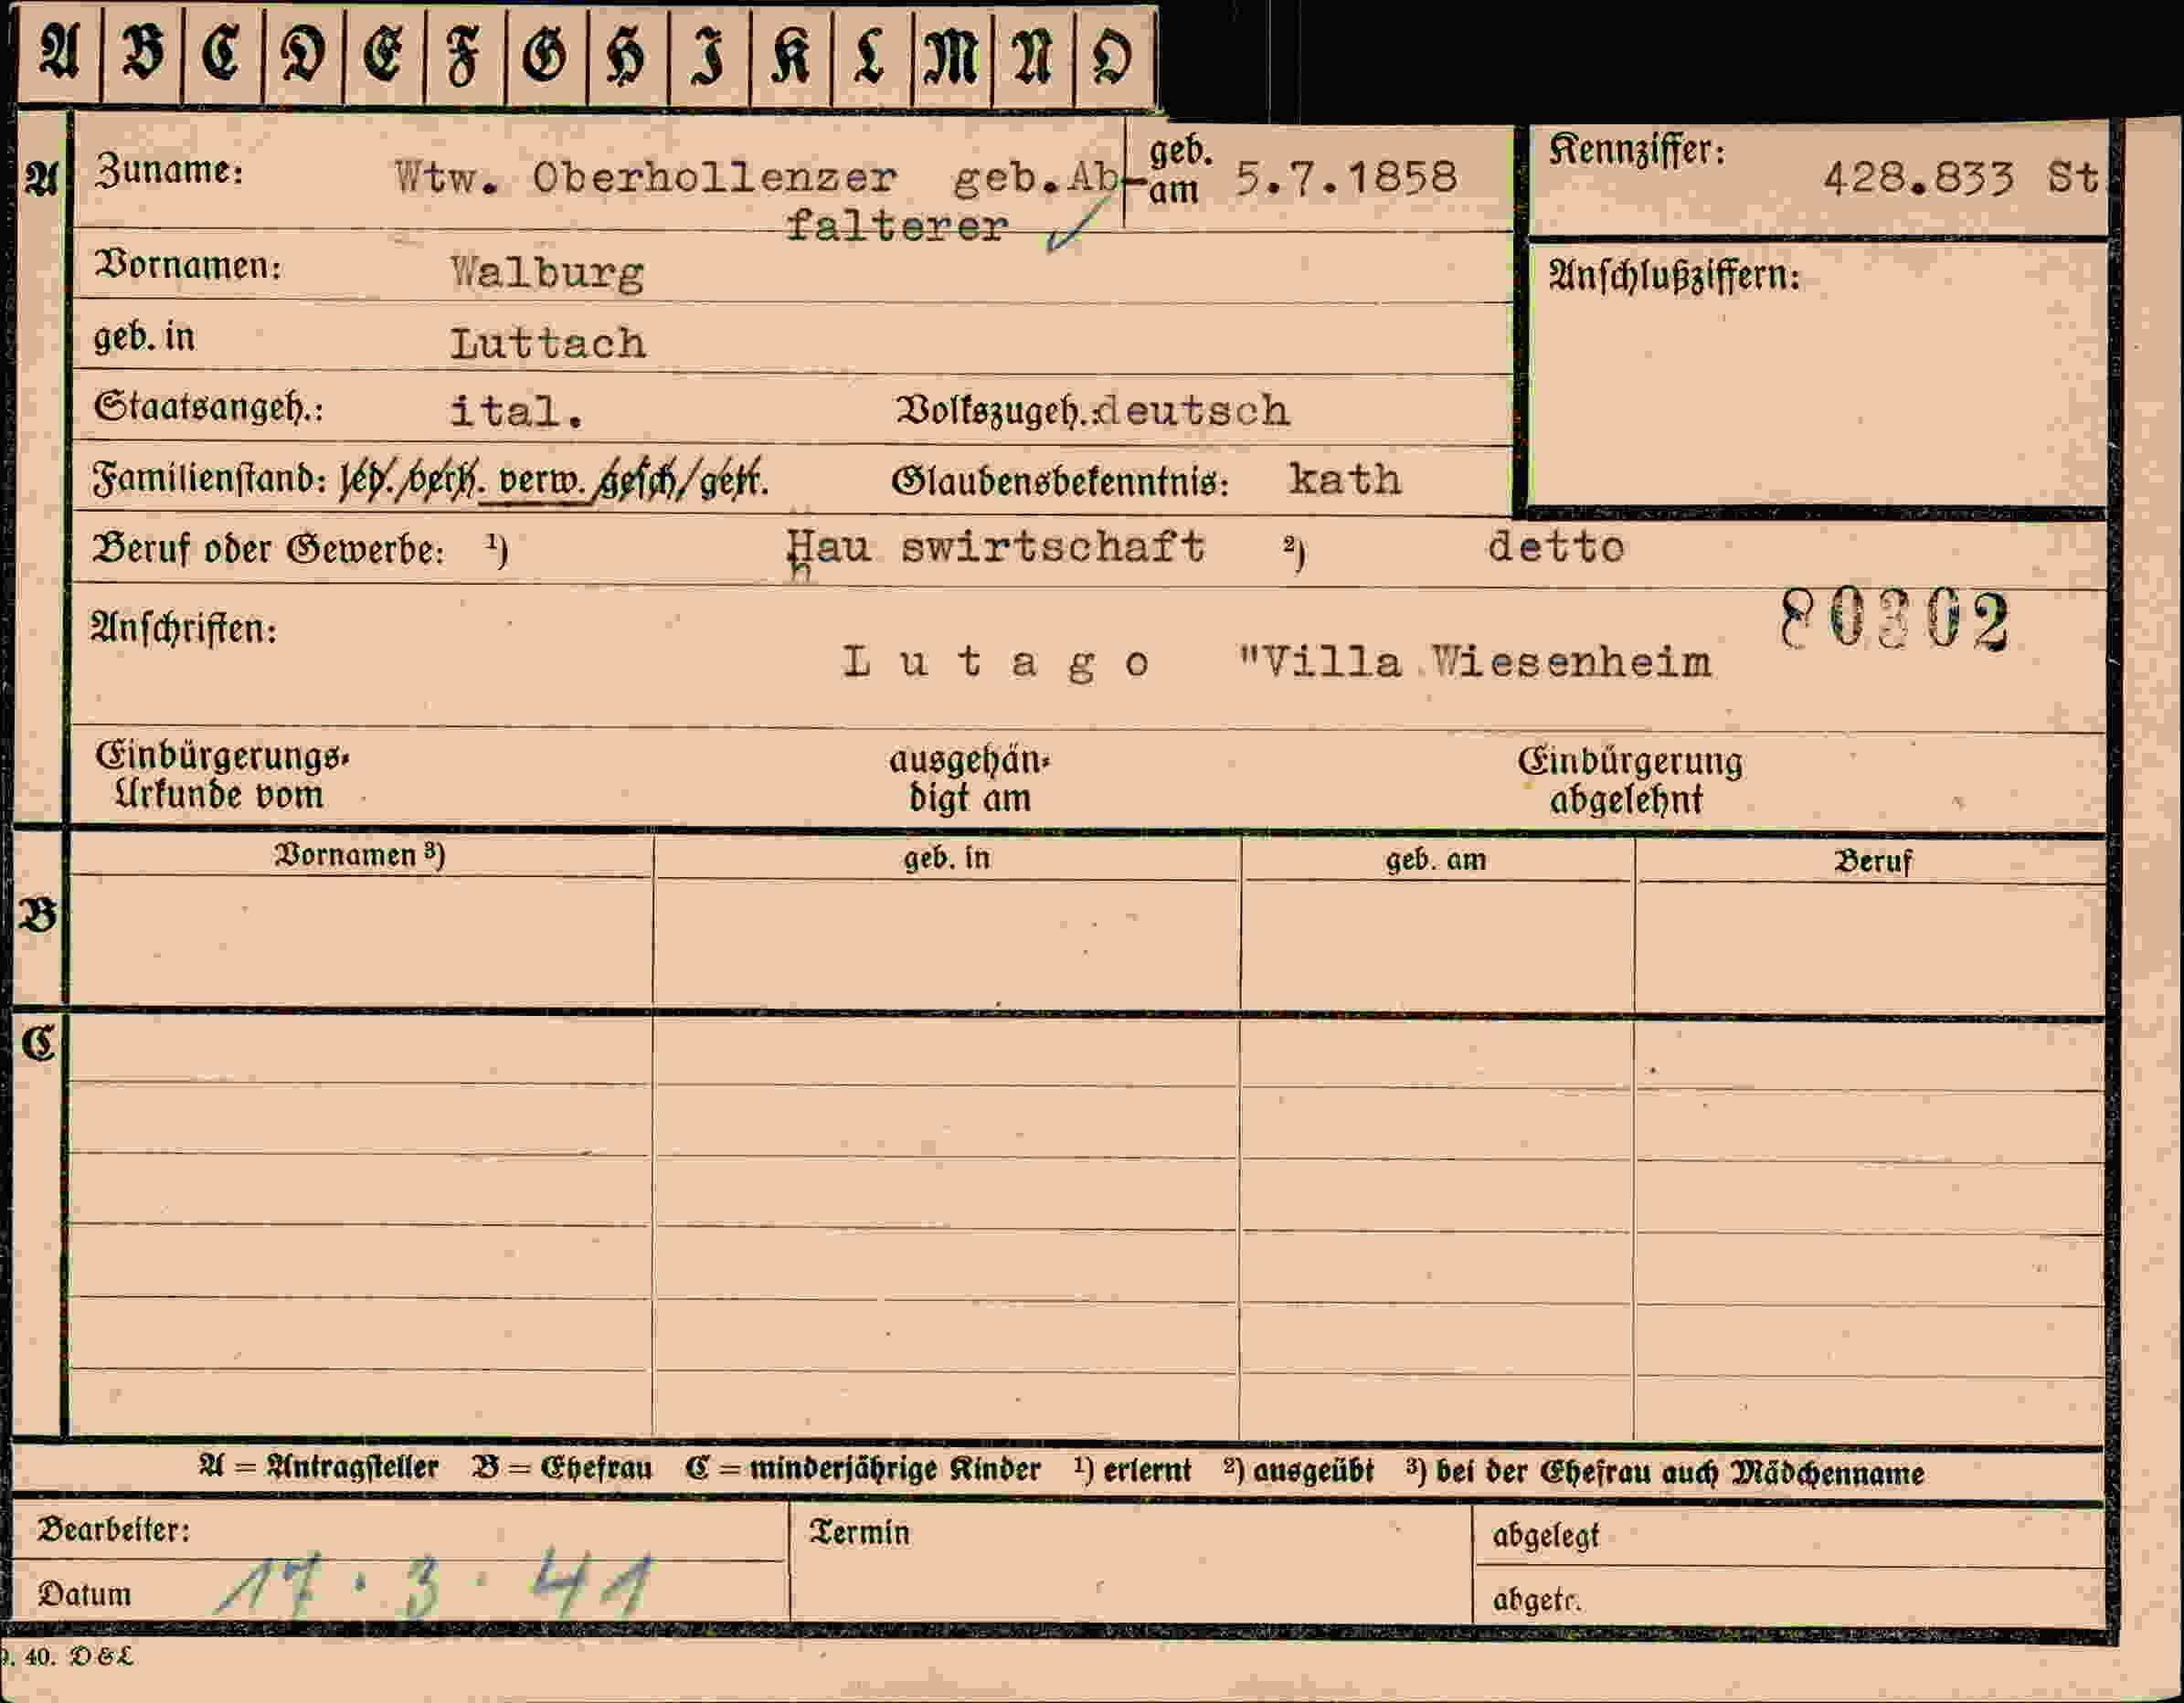 A B C D E F G H I K L M N O
A Zuname: Wtw. Oberhollenzer geb. Ab- geb. am 5.7.1858 Kennziffer: 428.833 St
falterer
Vornamen: Walburg Anschlußziffern:
geb. in Luttach
Staatsangeh.: ital. Volkszugeh.: deutsch
Familienstand: led./verh. verw. gesch/getr. Glaubensbekenntnis: kath
Beruf oder Gewerbe: ¹) Hau swirtschaft ²) detto
80302
Anschriften: L u t a g o "Villa Wiesenheim
Einbürgerungs- ausgehän- Einbürgerung
Urkunde vom digt am abgelehnt
Vornamen ³) geb. in geb. am Beruf
B
C
A = Antragsteller B = Ehefrau C = minderjährige Kinder ¹) erlernt ²) ausgeübt ³) bei der Ehefrau auch Mädchenname
Bearbeiter: Termin abgelegt
Datum 17.3.41 abgetr.
40. D & L